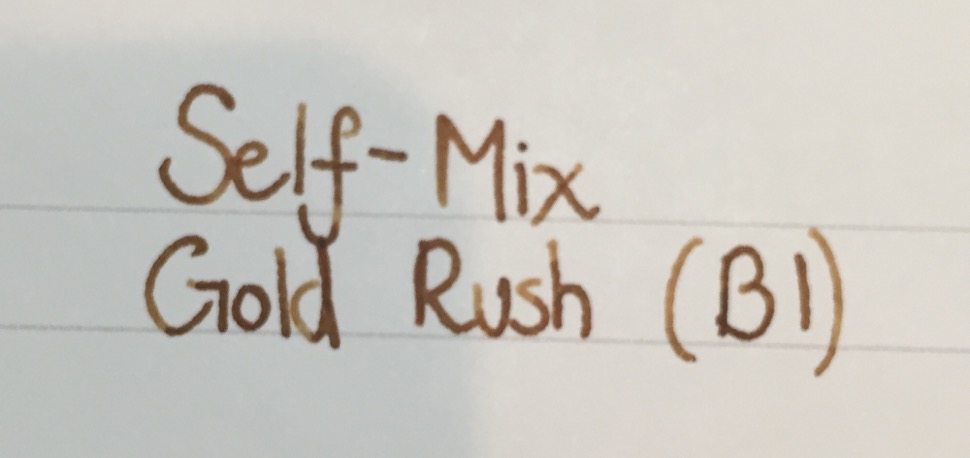 Self-Mix
Gold Rush (B1)